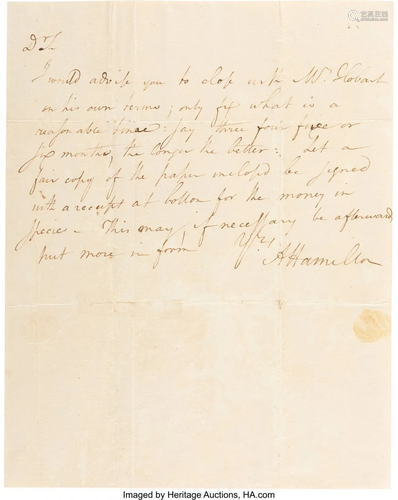 Dr S.
I would advise you to close with Mr Hobart
on his own terms; only fix what is a
reasonable time: say three four five or
six months, the longer the better: Let a
fair copy of the paper inclosed be signed
with a receipt at bottom for the money in
specie — This may, if necessary be afterward
put more in form
Yrs,
AHamilton
Imaged by Heritage Auctions, HA.com